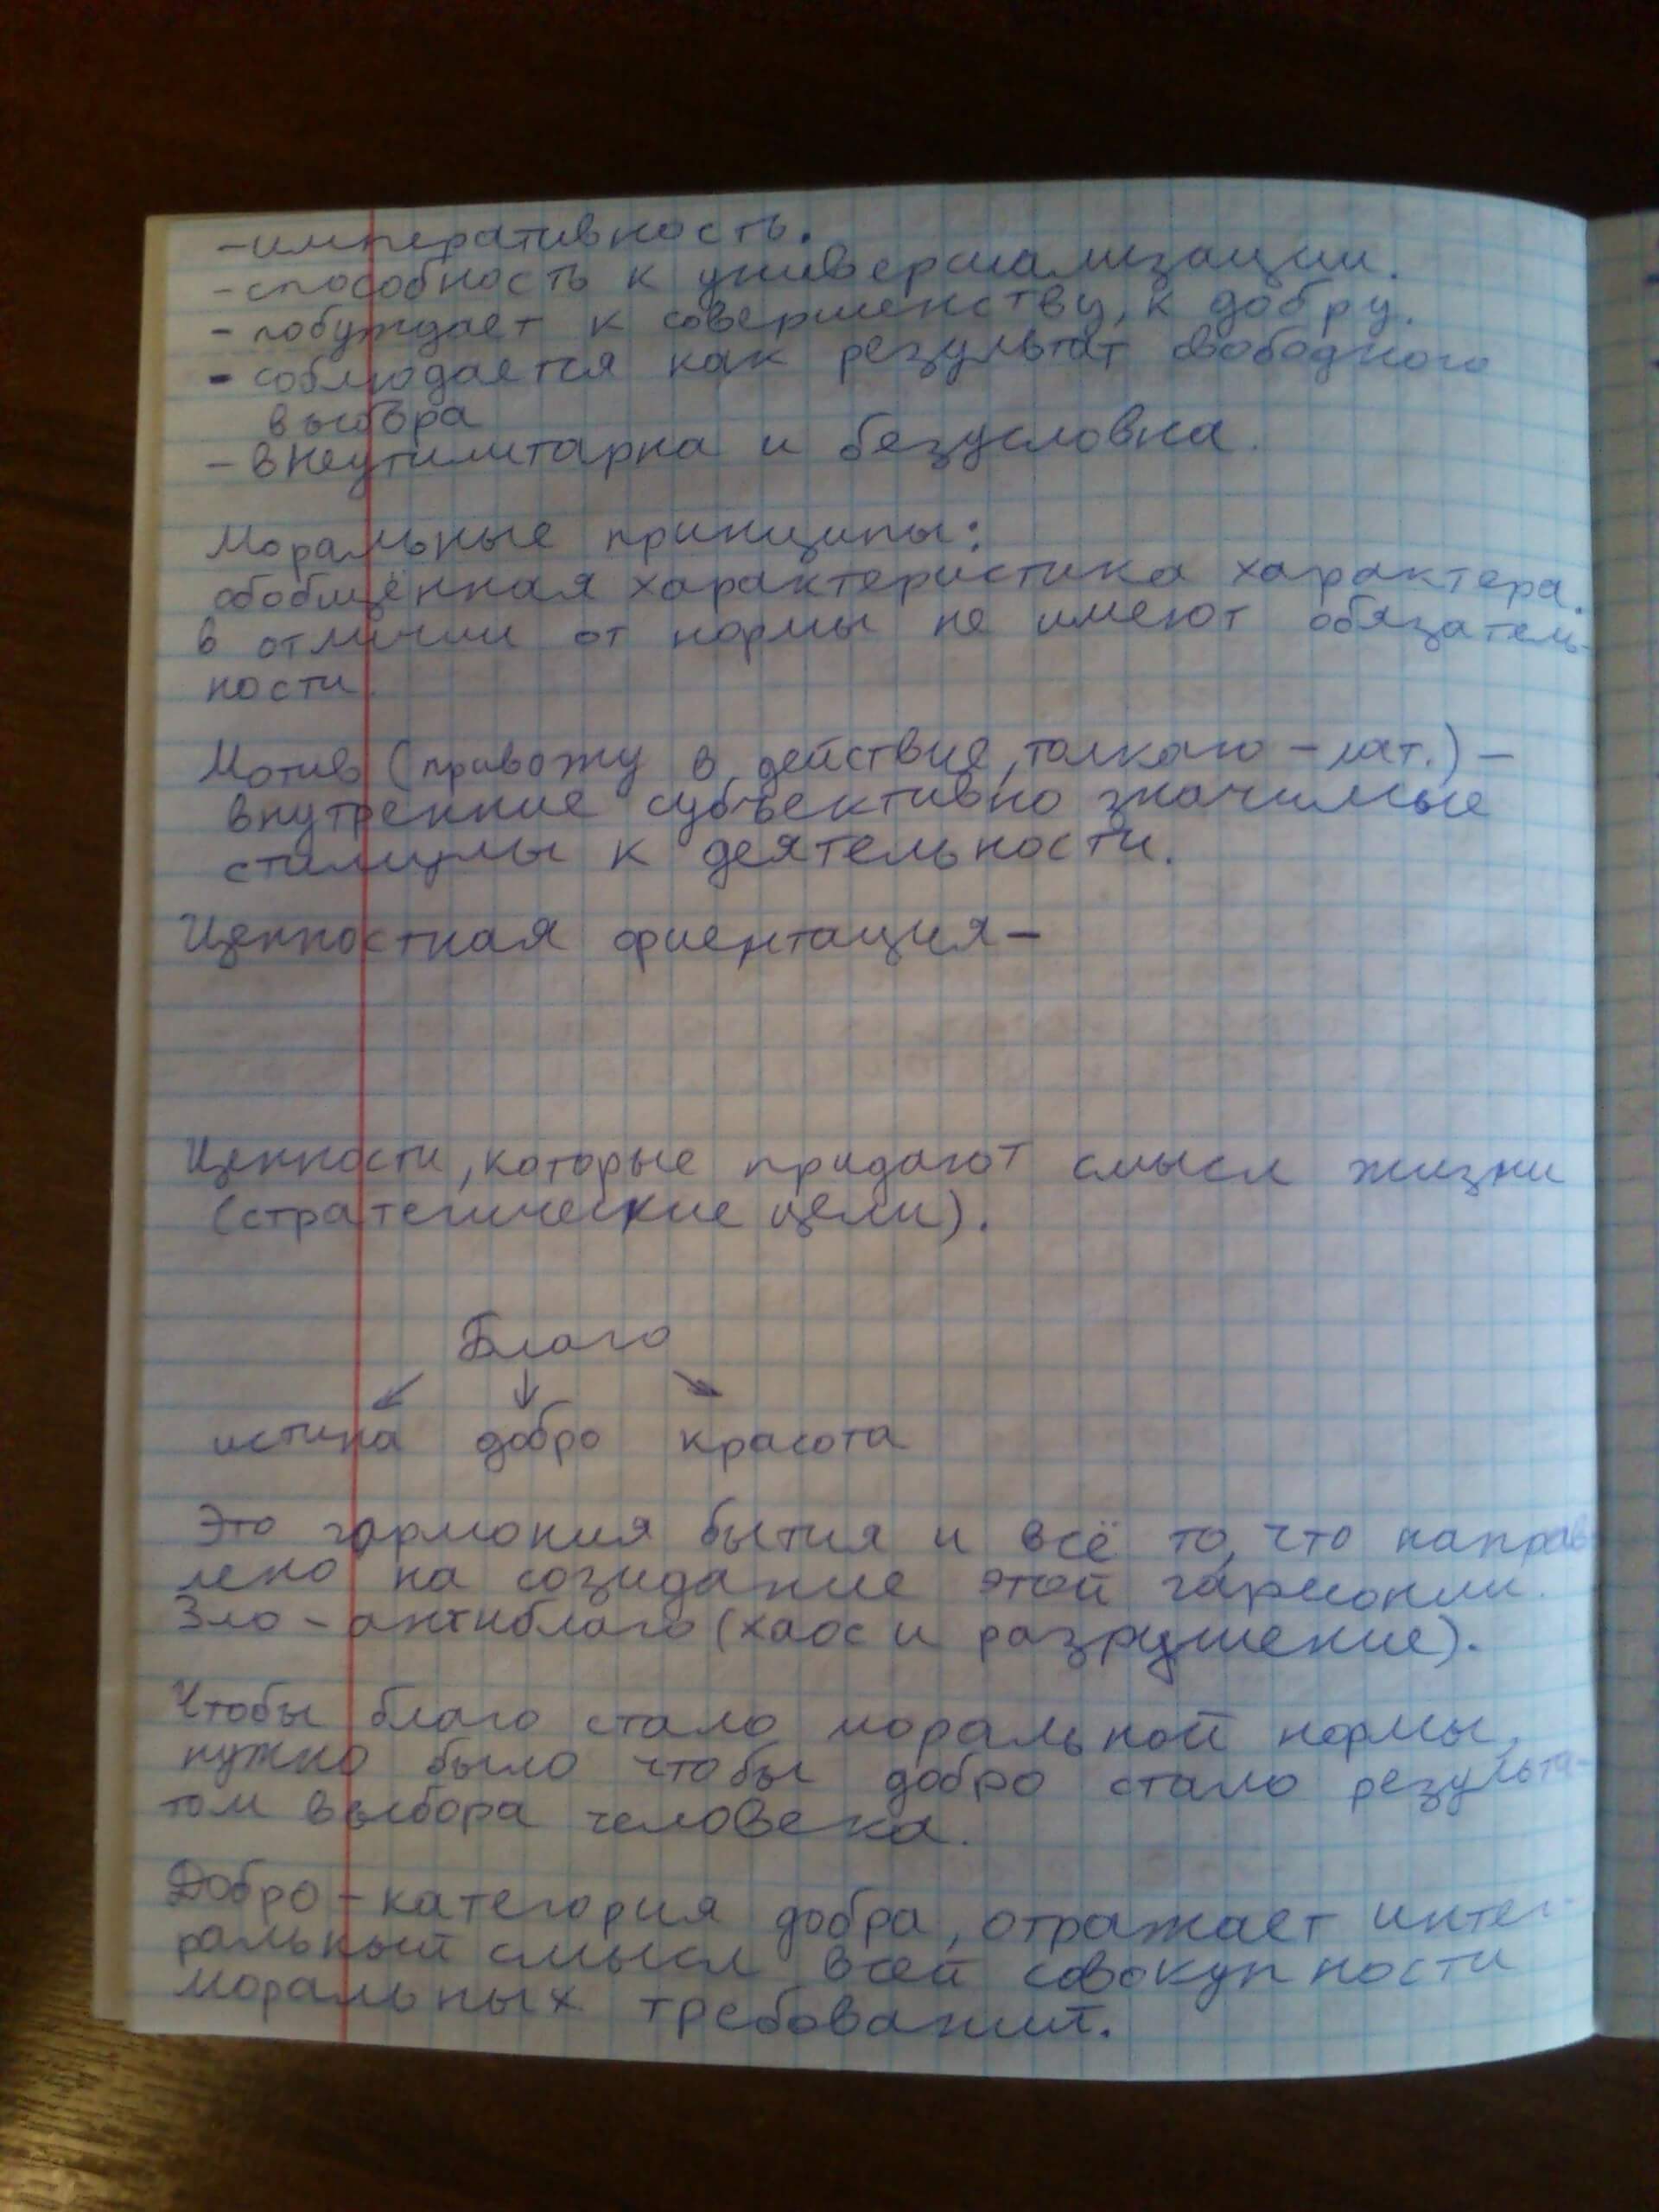 - императивность.
- способность к универсиализации.
- побуждает к совершенству, к добру.
- соблюдается как результат свободного
выбора
- внеутилитарна и безусловна.
Моральные принципы:
обобщённая характеристика характера.
в отличии от нормы не имеют обязатель-
ности.
Мотив (привожу в действие, толкаю - лат.) -
внутренние субъективно значимые
стимулы к деятельности.
Ценностная ориентация -
Ценности, которые придают смысл жизни
(стратегические цели).
Благо
истина добро красота
Это гармония бытия и всё то, что направ
лено на созидание этой гармонии.
Зло - антиблаго (хаос и разрушение).
Чтобы благо стало моральной нормы,
нужно было чтобы добро стало результа-
том выбора человека.
Добро - категория добра, отражает интег-
ральный смысл всей совокупности
моральных требований.